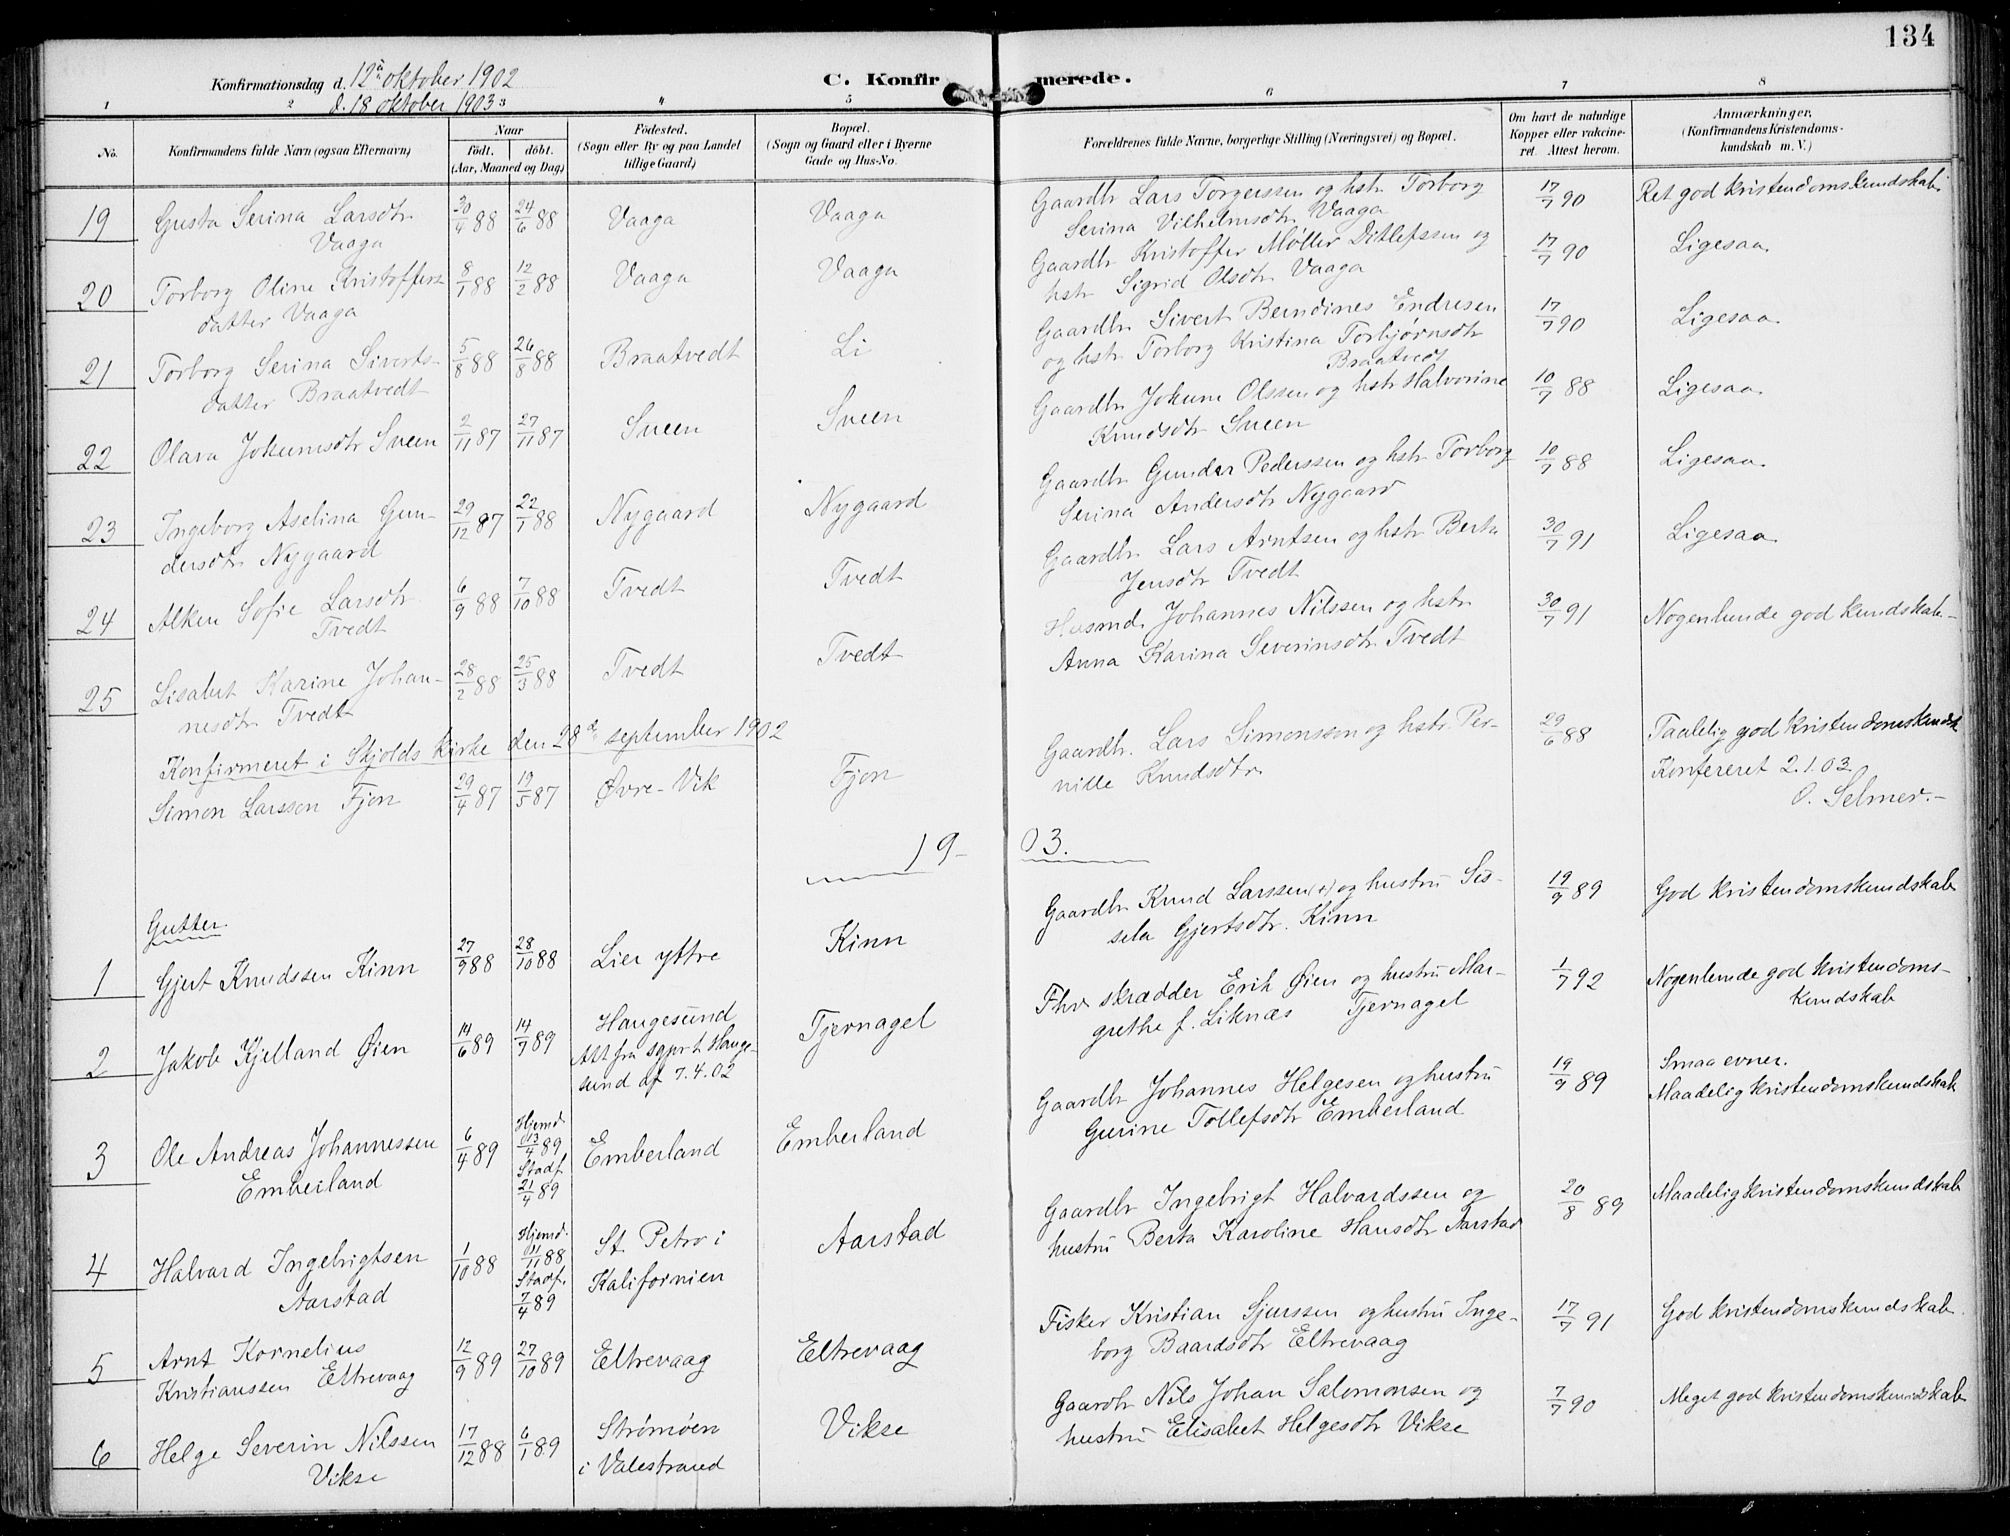 134
Konfirmationsdag d. 12te oktober 1902
d. 18 oktober 1903
C. Konfirmerede.
1 2 3 4 5 6 7 8
No.
Konfirmandens fulde Navn (ogsaa Efternavn)
Naar
födt. döbt.
(Aar, Maaned og Dag)
Födested.
(Sogn eller By og paa Landet
tillige Gaard.)
Bopæl.
(Sogn og Gaard eller i Byerne
Gade og Hus-No.
Forældrenes fulde Navne, borgerlige Stilling (Næringsvei) og Bopæl.
Om havt de naturlige
Kopper eller vakcine-
ret. Attest herom.
Anmærkninger,
(Konfirmandens Kristendoms-
kundskab m. V.)
19 Gusta Serina Larsdtr Vaaga 30/4 88 24/6 88 Vaaga Vaaga Gaardbr Lars Torgerssen og hstr Torborg
Serina Vilhelmsdtr Vaaga 17/7 90 Ret god kristendomskundskab
20 Torborg Oline Kristoffers-
datter Vaaga 8/1 88 12/2 88 Vaaga Vaaga Gaardbr Kristoffer Møller Ditlefssen og
hstr Sigrid Olsdtr Vaaga 17/7 90 Ligesaa
21 Torborg Serina Siverts-
datter Braatvedt 5/8 88 26/8 88 Braatvedt Li Gaardbr Sivert Berndines Endresen
og hstr Torborg Kristina Torbjørnsdtr
Braatvedt 17/7 90 Ligesaa
22 Olara Jokumsdtr Sveen 2/11 87 27/11 87 Sveen Sveen Gaardbr Jokum Olssen og hstr Halvorine
Knudsdtr Sveen 10/7 88 Ligesaa
23 Ingeborg Aselina Gun-
dersdtr Nygaard 29/12 87 22/1 88 Nygaard Nygaard Gaardbr Gunder Pederssen og hstr Torborg
Serina Andersdtr Nygaard 10/7 88 Ligesaa
24 Alken Sofie Larsdtr
Tvedt 6/9 88 7/10 88 Tvedt Tvedt Gaardbr Lars Arntsen og hstr Berta
Jensdtr Tvedt 30/7 91 Ligesaa
25 Lisabet Karine Johan-
nesdtr Tvedt 28/2 88 25/3 88 Tvedt Tvedt Husmd. Johannes Nilssen og hstr
Anna Karina Severinsdtr Tvedt 30/7 91 Nogenlunde god kundskab
Konfirmeret i Skjolds kirke den 28de september 1902
Simon Larsson Fjon 29/4 87 19/5 87 Øvre-Vik Fjon Gaardbr. Lars Simonsson og hstr. Per-
nille Knudsdtr. 29/6 88 Taalelig god kristendomskundsk
Konfereret 2.1.03
O. Selmer.
1903.
Gutter.
1 Gjert Knudssen Kinn 27/9 88 28/10 88 Lier yttre Kinn Gaardbr Knud Larssen (e) og hustru Sis-
sela Gjertsdtr. Kinn 19/9 89 God kristendomskundskab
2 Jakob Kjelland Øien 14/6 89 14/7 89 Haugesund
Att fra sgpr. t. Hauge-
sund af 7.4.02 Tjernagel Fhv skrædder Erik Øien og hustru Mar-
grethe f. Liknæs Tjernagel 1/7 92 Nogenlunde god kristendoms-
kundskab
3 Ole Andreas Johannessen
Emberland 6/4 89 Hjemd.
13/4 89
Stadf.
21/4 89 Emberland Emberland Gaardbr Johannes Helgesen og hustru
Gurine Tollefsdtr Emberland 19/9 89 Smaa evner.
Maadelig kristendomskundskab
4 Halvard Ingebrigtsen
Aarstad 1/10 88 Hjemd.
11/11 88
Stadf.
7/4 89 St. Petro i
Kalifornien Aarstad Gaardbr Ingebrigt Halvardssen og
hustru Berta Karoline Hansdtr Aarstad 20/8 89 Maadelig kristendomskundskab
5 Arnt Kornelius
Kristianssen Eltrevaag 12/9 89 27/10 89 Eltrevaag Eltrevaag Fisker Kristian Sjurssen og hustru Inge-
borg Baardsdtr Eltrevaag 17/7 91 God kristendomskundskab
6 Helge Severin Nilssen
Vikse 17/12 88 6/1 89 Strømøen
i Valestrand Vikse Gaardbr Nils Johan Salomonsen og
hustru Elisabet Helgesdtr Vikse 7/7 90 Meget god kristendomskundskab